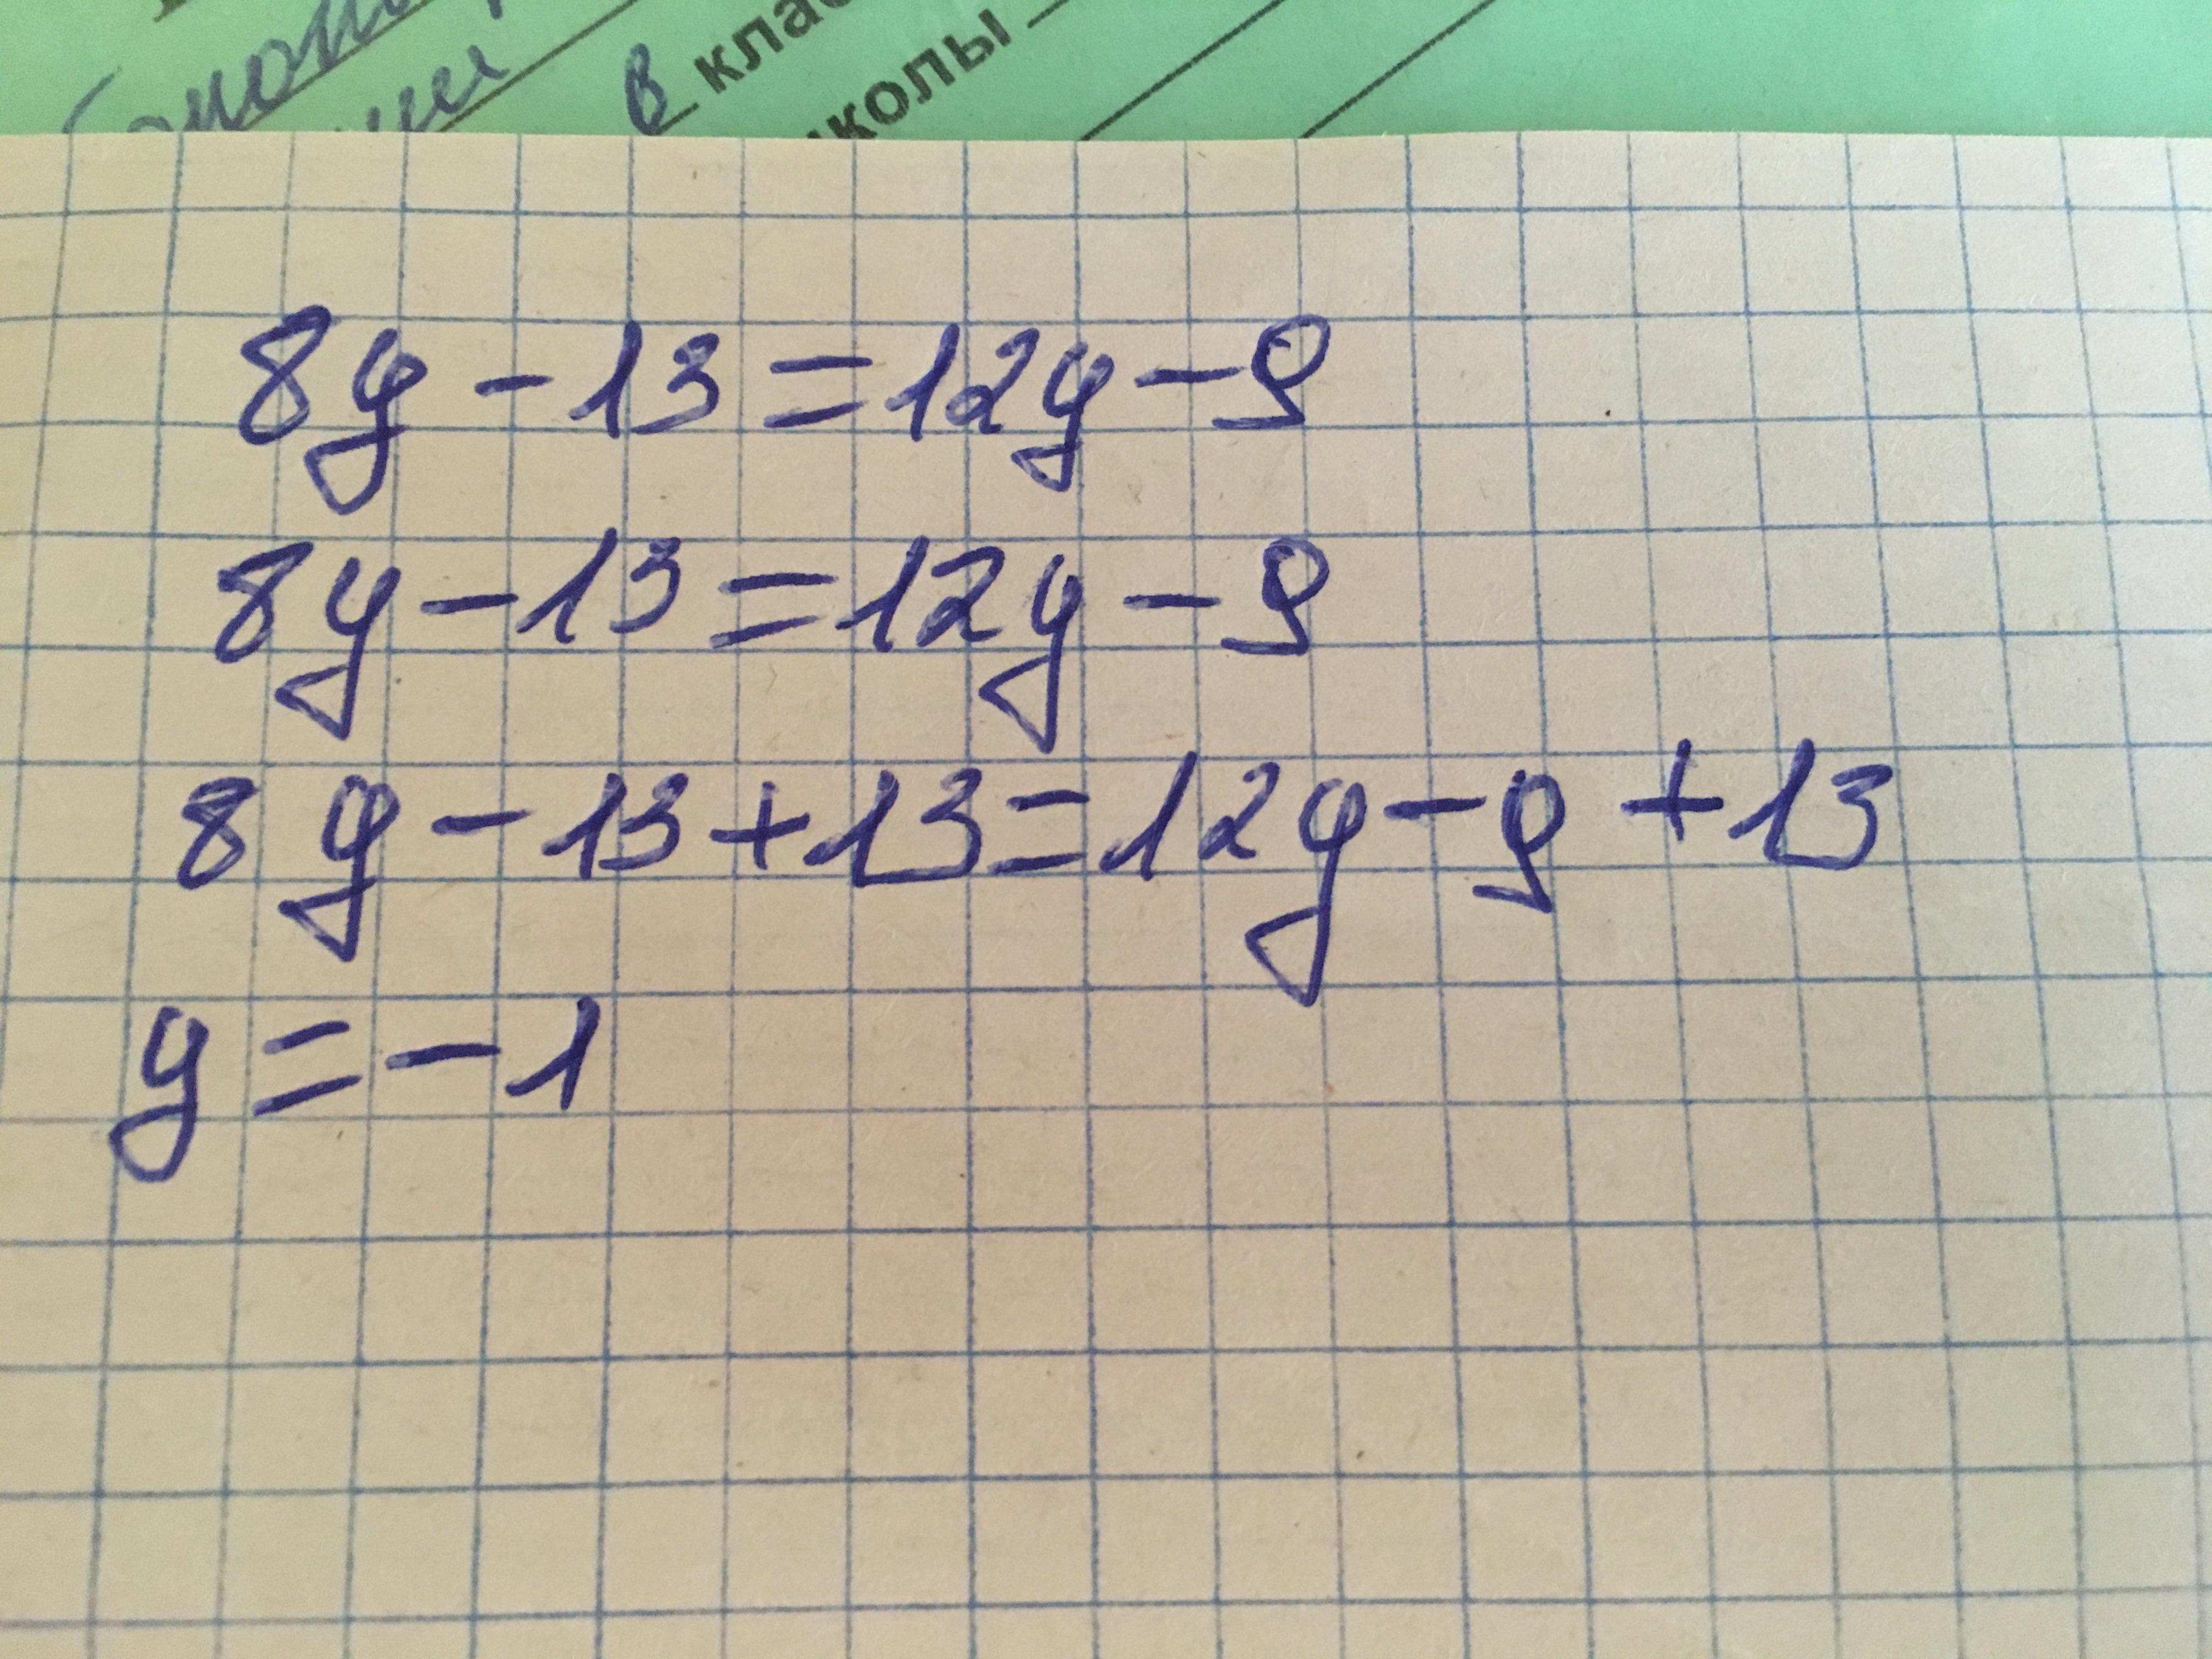 в клас
школы
8y - 13 = 12y - 9
8y - 13 = 12y - 9
8y - 13 + 13 = 12y - 9 + 13
y = -1